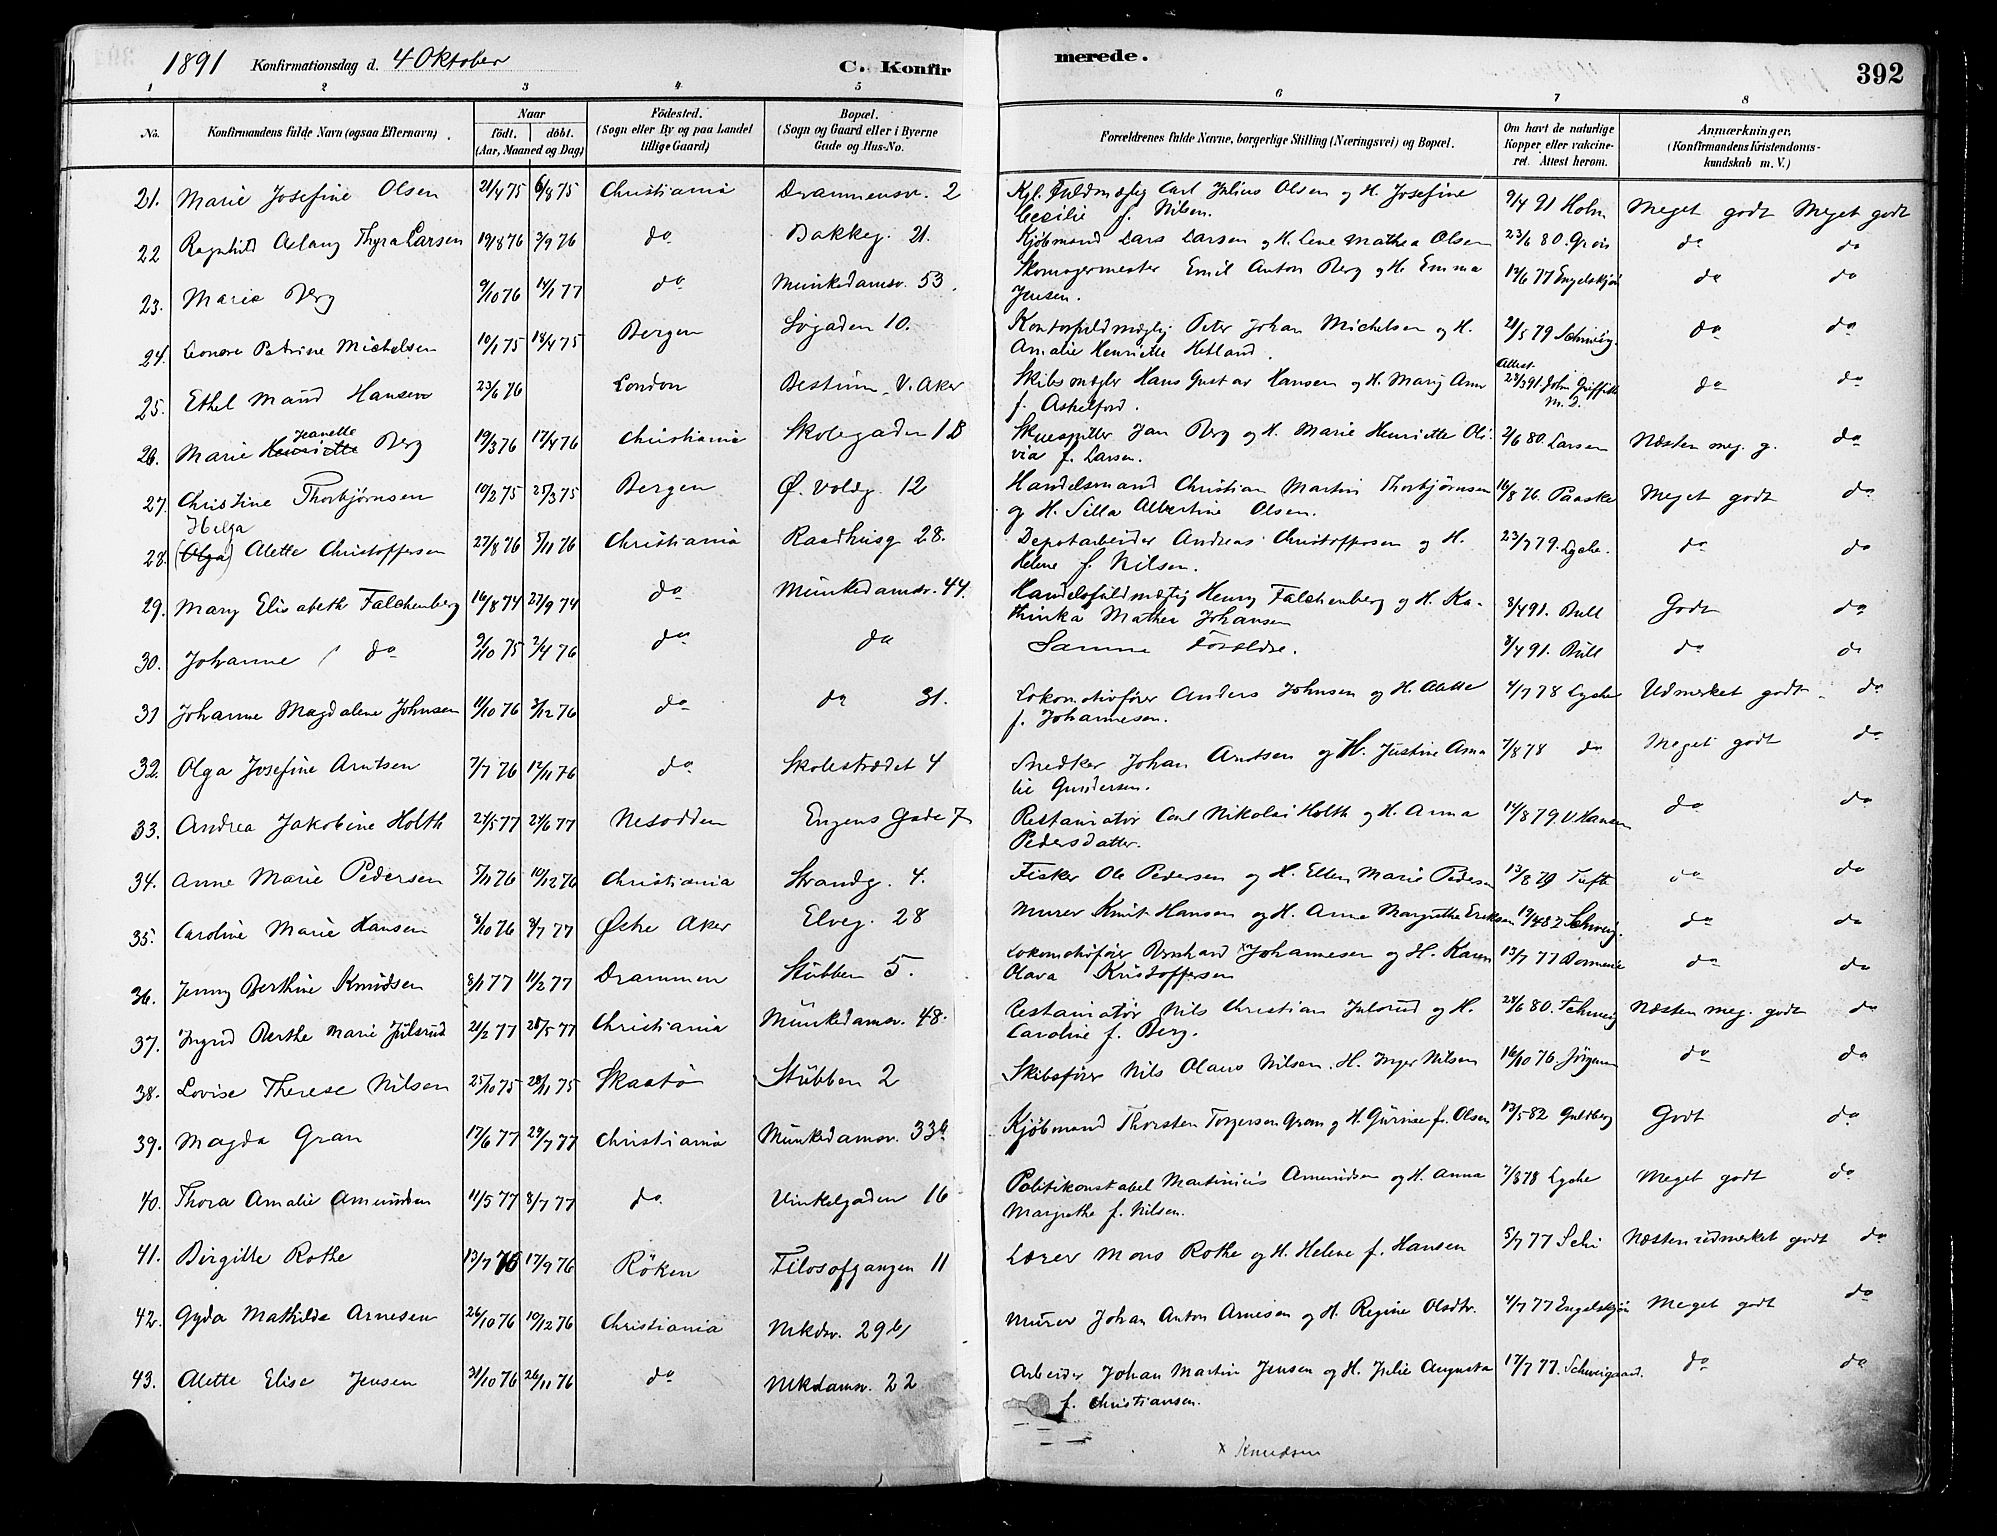 1891 Konfirmationsdag d. 4 Oktober C. Konfirmerede. 392
1 2 3 4 5 6 7 8
No. Konfirmandens fulde Navn (ogsaa Efternavn). Naar födt. döbt. (Aar, Maaned og Dag) Födested. (Sogn eller By og paa Landet tillige Gaard) Bopæl. (Sogn og Gaard eller i Byerne Gade og Hus-No. Forældrenes fulde Navne, borgerlige Stilling (Næringsvei) og Bopæl. Om havt de naturlige Kopper eller vakcineret. Attest herom. Anmærkninger, (Konfirmandens Kristendomskundskab m. V.)
21. Marie Josefine Olsen 21/4 75 6/8 75 Christiania Drammensv. 2 Kgl. Fuldmægtig Carl Julius Olsen og H. Josefine Cecilie f. Nilsen. 9/4 91 Holm Meget godt Meget godt
22 Ragnhild Aslaug Thyra Larsen 19/8 76 3/9 76 do Bakkeg. 21. Kjøbmand Lars Larsen og H. Lene Mathea Olsen 23/6 80. do do
23. Marie Berg 9/10 76 14/1 77 do Munkedamsv. 53. Skomagermester Emil Anton Berg og H. Emma Jensen. 13/6 77 Engelskjøn do do
24. Leonore Petrine Michelsen 10/1 75 18/4 75 Bergen Søgaden 10. Kontorfuldmægtig Peter Johan Michelsen og H. Amalie Henriette Hetland. 21/5 79 Schweig. do do
25. Ethel Maud Hansen 23/6 76 London Bestum, V. Aker Skibsmægler Hans Gustav Hansen og H. Mary Ann f. Ashelford. Attest 23/3 91 John Griffith do do
26. Marie Henriette Jeanette Berg 19/3 76 17/4 76 Christiania Skolegaden 1B Skuespiller Jan Berg og H. Marie Henriette Olivia f. Larsen. 2/6 80 Larsen Næsten meg. g. do
27. Christine Thorbjørnsen 10/2 75 25/3 75 Bergen Ø. Voldg. 12 Handelsmand Christian Martin Thorbjørnsen og H. Silla Albertine Olsen. 16/8 76 Paaske Meget godt do
28. Helga (Olga) Alette Christoffersen 27/8 76 5/11 76 Christiania Raadhusg 28. Depotarbeider Andreas Christoffersen og H. Helene f. Nilsen. 23/7 79. Lyche. do do
29. Mary Elisabeth Falchenberg 16/8 74 27/9 74 do Munkedamsv. 44. Handelsfuldmægtig Henry Falchenberg og H. Kathinka Mathea Johansen 8/4 91. Bull Godt do
30. Johanne do 9/10 75 2/4 76 do do Samme Forældre. 8/4 91. Bull do do
31 Johanne Magdalene Johnsen 11/10 76 3/12 76 do do 31. Lokomotivfører Anders Johnsen og H. Alette f. Johannesen. 4/7 78 Lyche Udmerket godt do
32. Olga Josefine Arntsen 7/7 76 12/11 76 do Skolestrædet 4 Snedker Johan Arntsen og H. Justine Amalie Gundersen. 7/8 78 do Meget godt do
33. Andrea Jakobine Holth 21/5 77 24/6 77 Nesodden Eugens Gade 7 Restauratør Carl Nikolai Holth og H. Anna Pedersdatter. 14/8 79 V. Hansen do do
34. Anne Marie Pedersen 5/11 76 10/12 76 Christiania Strandg. 4. Fisker Ole Pedersen og H. Ellen Marie Pedersen 13/8 79 Tufte do do
35. Caroline Marie Hansen 8/10 76 8/7 77 Østre Aker Elveg. 28 Murer Knut Hansen og H. Anne Margrethe Eriksen 19/4 82 Schweig. do do
36. Jenny Berthine Knudsen 8/1 77 11/2 77 Drammen Stubben 5. Lokomotivfører Bernhard x Johannesen og H. Karen Olava Kristoffersen 13/7 77 do do
37. Ingrid Berthe Marie Julsrud 21/2 77 28/5 77 Christiania Munkedamsv. 48. Restauratør Nils Christian Julsrud og H. Caroline f. Berg. 28/6 80. Schweig Næsten meg. godt do
38. Lovise Therese Nilsen 25/10 75 28/11 75 Skaatø Stubben 2 Skibsfører Nils Olaus Nilsen. H. Inger Nilsen 16/10 76 do do
39. Magda Gran 17/6 77 29/7 77 Christiania Munkedamsv. 33a Kjøbmand Thorsten Torgersen Gran og H. Gurine f. Olsen 13/5 82 Guldberg Godt do
40. Thora Amalie Amundsen 11/5 77 8/7 77 do. Vinkelgaden 16 Politikonstabel Martinius Amundsen og H. Anna Margrethe f. Nilsen. 7/8 78 Lyche Meget godt do
41. Birgitte Rothe 13/7 76 17/9 76 Röken Filosofgangen 11 Lærer Mons Rothe og H. Helene f. Hansen 5/7 77 Næsten udmerket godt do
42. Gyda Mathilde Arnesen 26/10 76 10/12 76 Christiania Mkdsv. 29b Murer Johan Anton Arnesen og H. Regine Olsdtr. 4/7 77 Engelskjøn Meget godt do
43. Alette Elise Jensen 31/10 76 26/11 76 do Mkdamsv. 22 Arbeider Johan Martin Jensen og H. Julie Augusta f. Christiansen. 17/7 77. Schweigaard. do do
x Knudsen